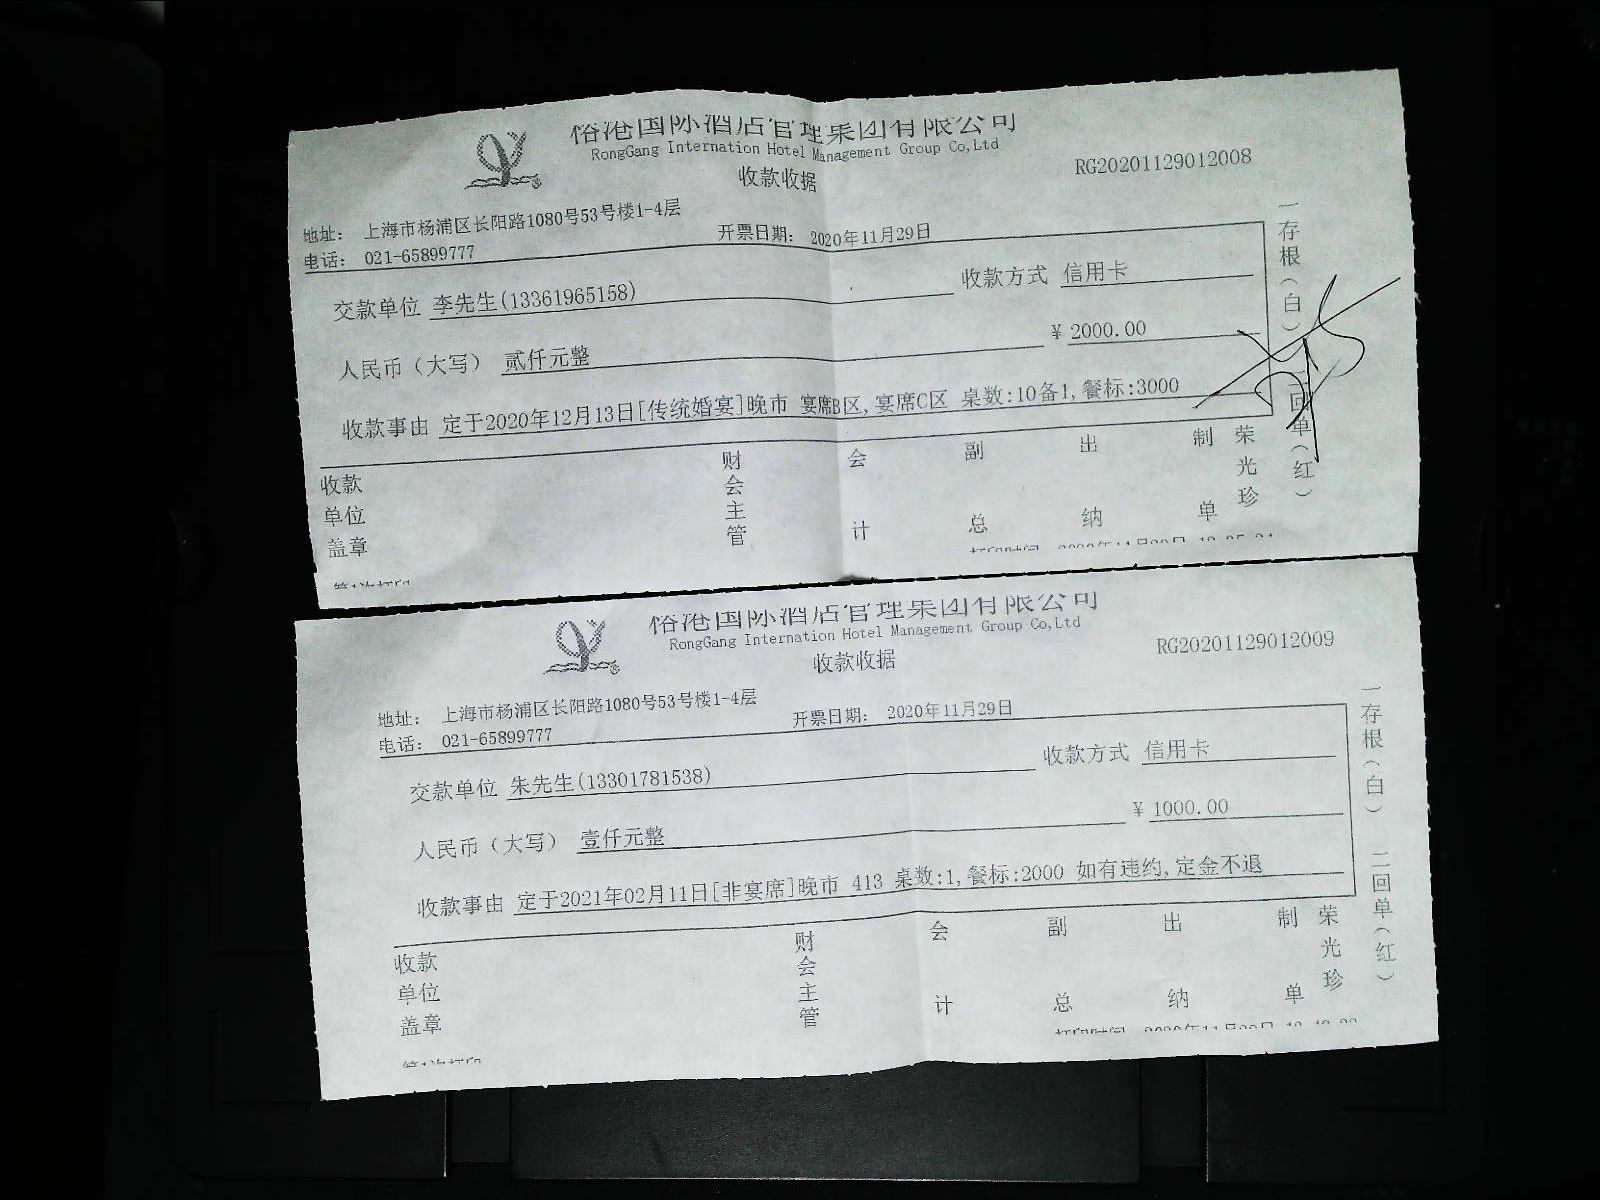 俗港国际酒店管理集团有限公司
RongGang Internation Hotel Management Group Co,Ltd
收款收据
RG20201129012008
地址： 上海市杨浦区长阳路1080号53号楼1-4层
电话： 021-65899777
开票日期： 2020年11月29日
交款单位 李先生(13361965158)
收款方式 信用卡
人民币（大写） 贰仟元整
¥ 2000.00
收款事由 定于2020年12月13日[传统婚宴]晚市 宴席B区,宴席C区 桌数:10备1,餐标:3000
收款单位盖章
财会主管
会计
副总
出纳
制单
荣光珍
一存根（白）
二回单（红）
第1次打印
俗港国际酒店管理集团有限公司
RongGang Internation Hotel Management Group Co,Ltd
收款收据
RG20201129012009
地址： 上海市杨浦区长阳路1080号53号楼1-4层
电话： 021-65899777
开票日期： 2020年11月29日
交款单位 朱先生(13301781538)
收款方式 信用卡
人民币（大写） 壹仟元整
¥ 1000.00
收款事由 定于2021年02月11日[非宴席]晚市 413 桌数:1,餐标:2000 如有违约,定金不退
收款单位盖章
财会主管
会计
副总
出纳
制单
荣光珍
一存根（白）
二回单（红）
第1次打印